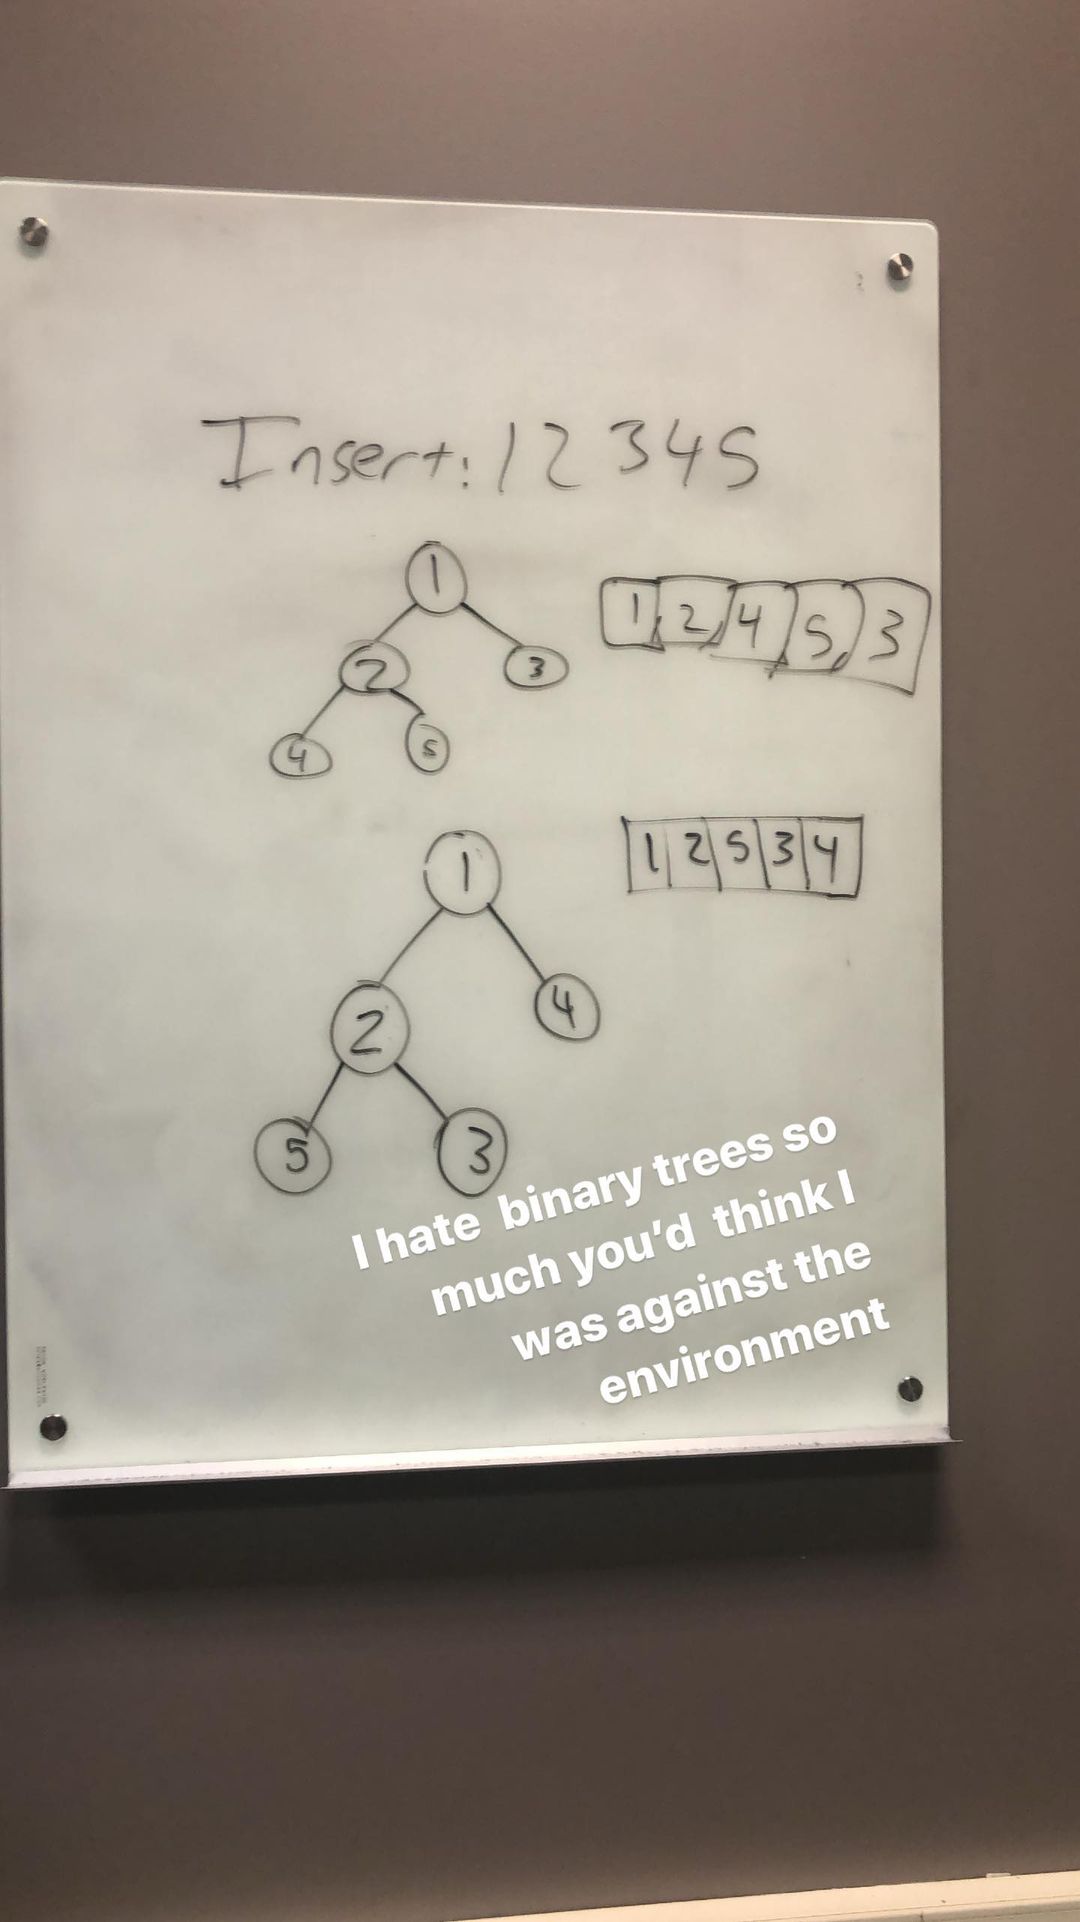 Insert: 1 2 3 4 5
1
1, 2, 4, 5, 3
2 3
4 5
1 2 5 3 4
1
2 4
5 3
I hate binary trees so
much you'd think I
was against the
environment